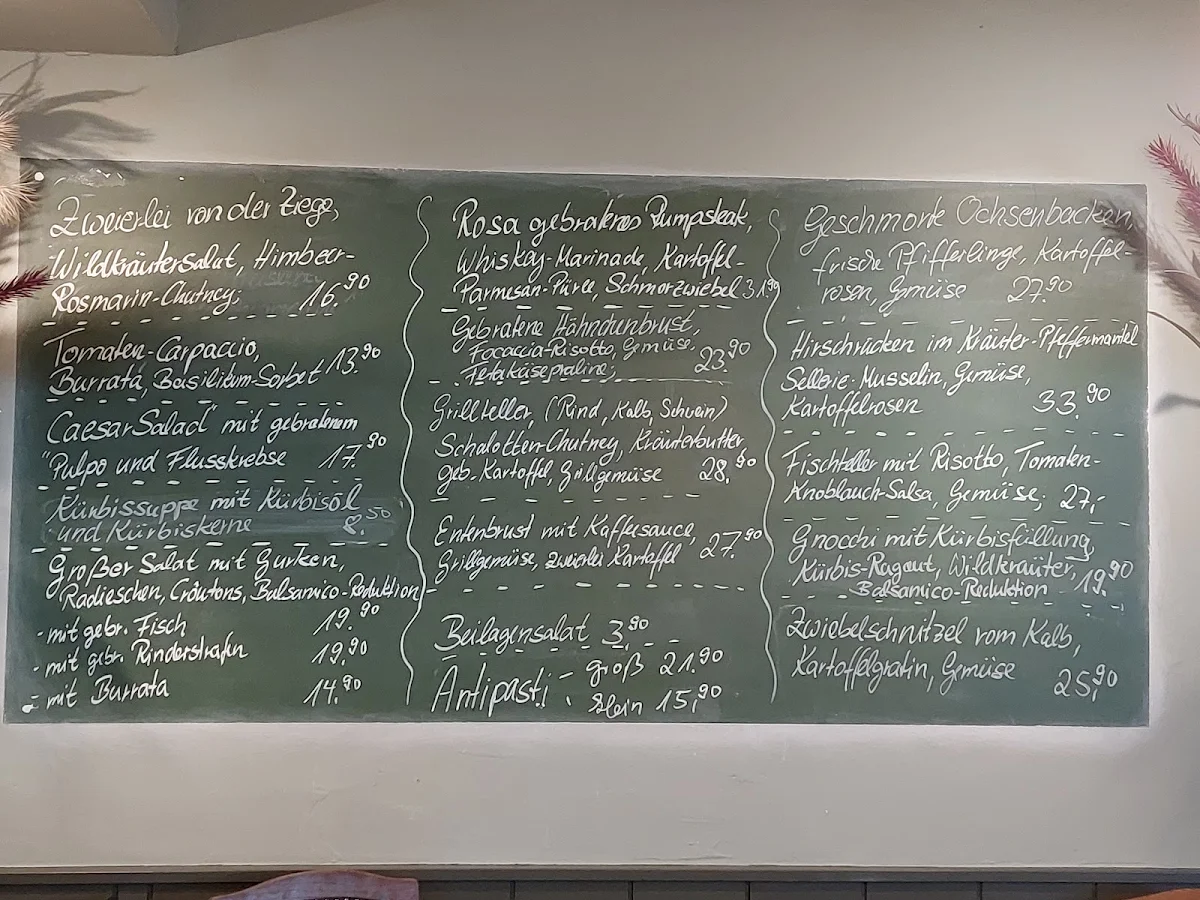 Zweierlei von der Ziege,
Wildkräutersalat, Himbeer-
Rosmarin-Chutney; 16,90
Tomaten-Carpaccio,
Burrata, Basilikum-Sorbet 13,90
"Caesar Salad" mit gebratenem
Pulpo und Flusskrebse 17,90
Kürbissuppe mit Kürbisöl
und Kürbiskerne 8,50
Großer Salat mit Gurken,
Radieschen, Croûtons, Balsamico-Reduktion
- mit gebr. Fisch 19,90
- mit gebr. Rinderstrafn 19,90
- mit Burrata 14,90
Rosa gebratenes Rumpsteak,
Whiskey-Marinade, Kartoffel-
Parmesan-Püree, Schmorzwiebel 31,90
Gebratene Hähnchenbrust,
Focaccia-Risotto, Gemüse,
Fetakäsepraline; 23,90
Grillteller, (Rind, Kalb, Schwein)
Schalotten-Chutney, Kräuterbutter,
geb. Kartoffel, Grillgemüse 28,90
Entenbrust mit Kaffeesauce,
Grillgemüse, zweierlei Kartoffel 27,90
Beilagensalat 3,90
Antipasti - groß 21,90
- klein 15,90
Geschmorte Ochsenbacken,
frische Pfifferlinge, Kartoffel-
rosen, Gemüse 27,90
Hirschrücken im Kräuter-Pfeffermantel
Sellerie-Musselin, Gemüse,
Kartoffelrosen 33,90
Fischteller mit Risotto, Tomaten-
Knoblauch-Salsa, Gemüse; 27,-
Gnocchi mit Kürbisfüllung,
Kürbis-Ragout, Wildkräuter, 19,90
Balsamico-Reduktion
Zwiebelschnitzel vom Kalb,
Kartoffelgratin, Gemüse 25,90